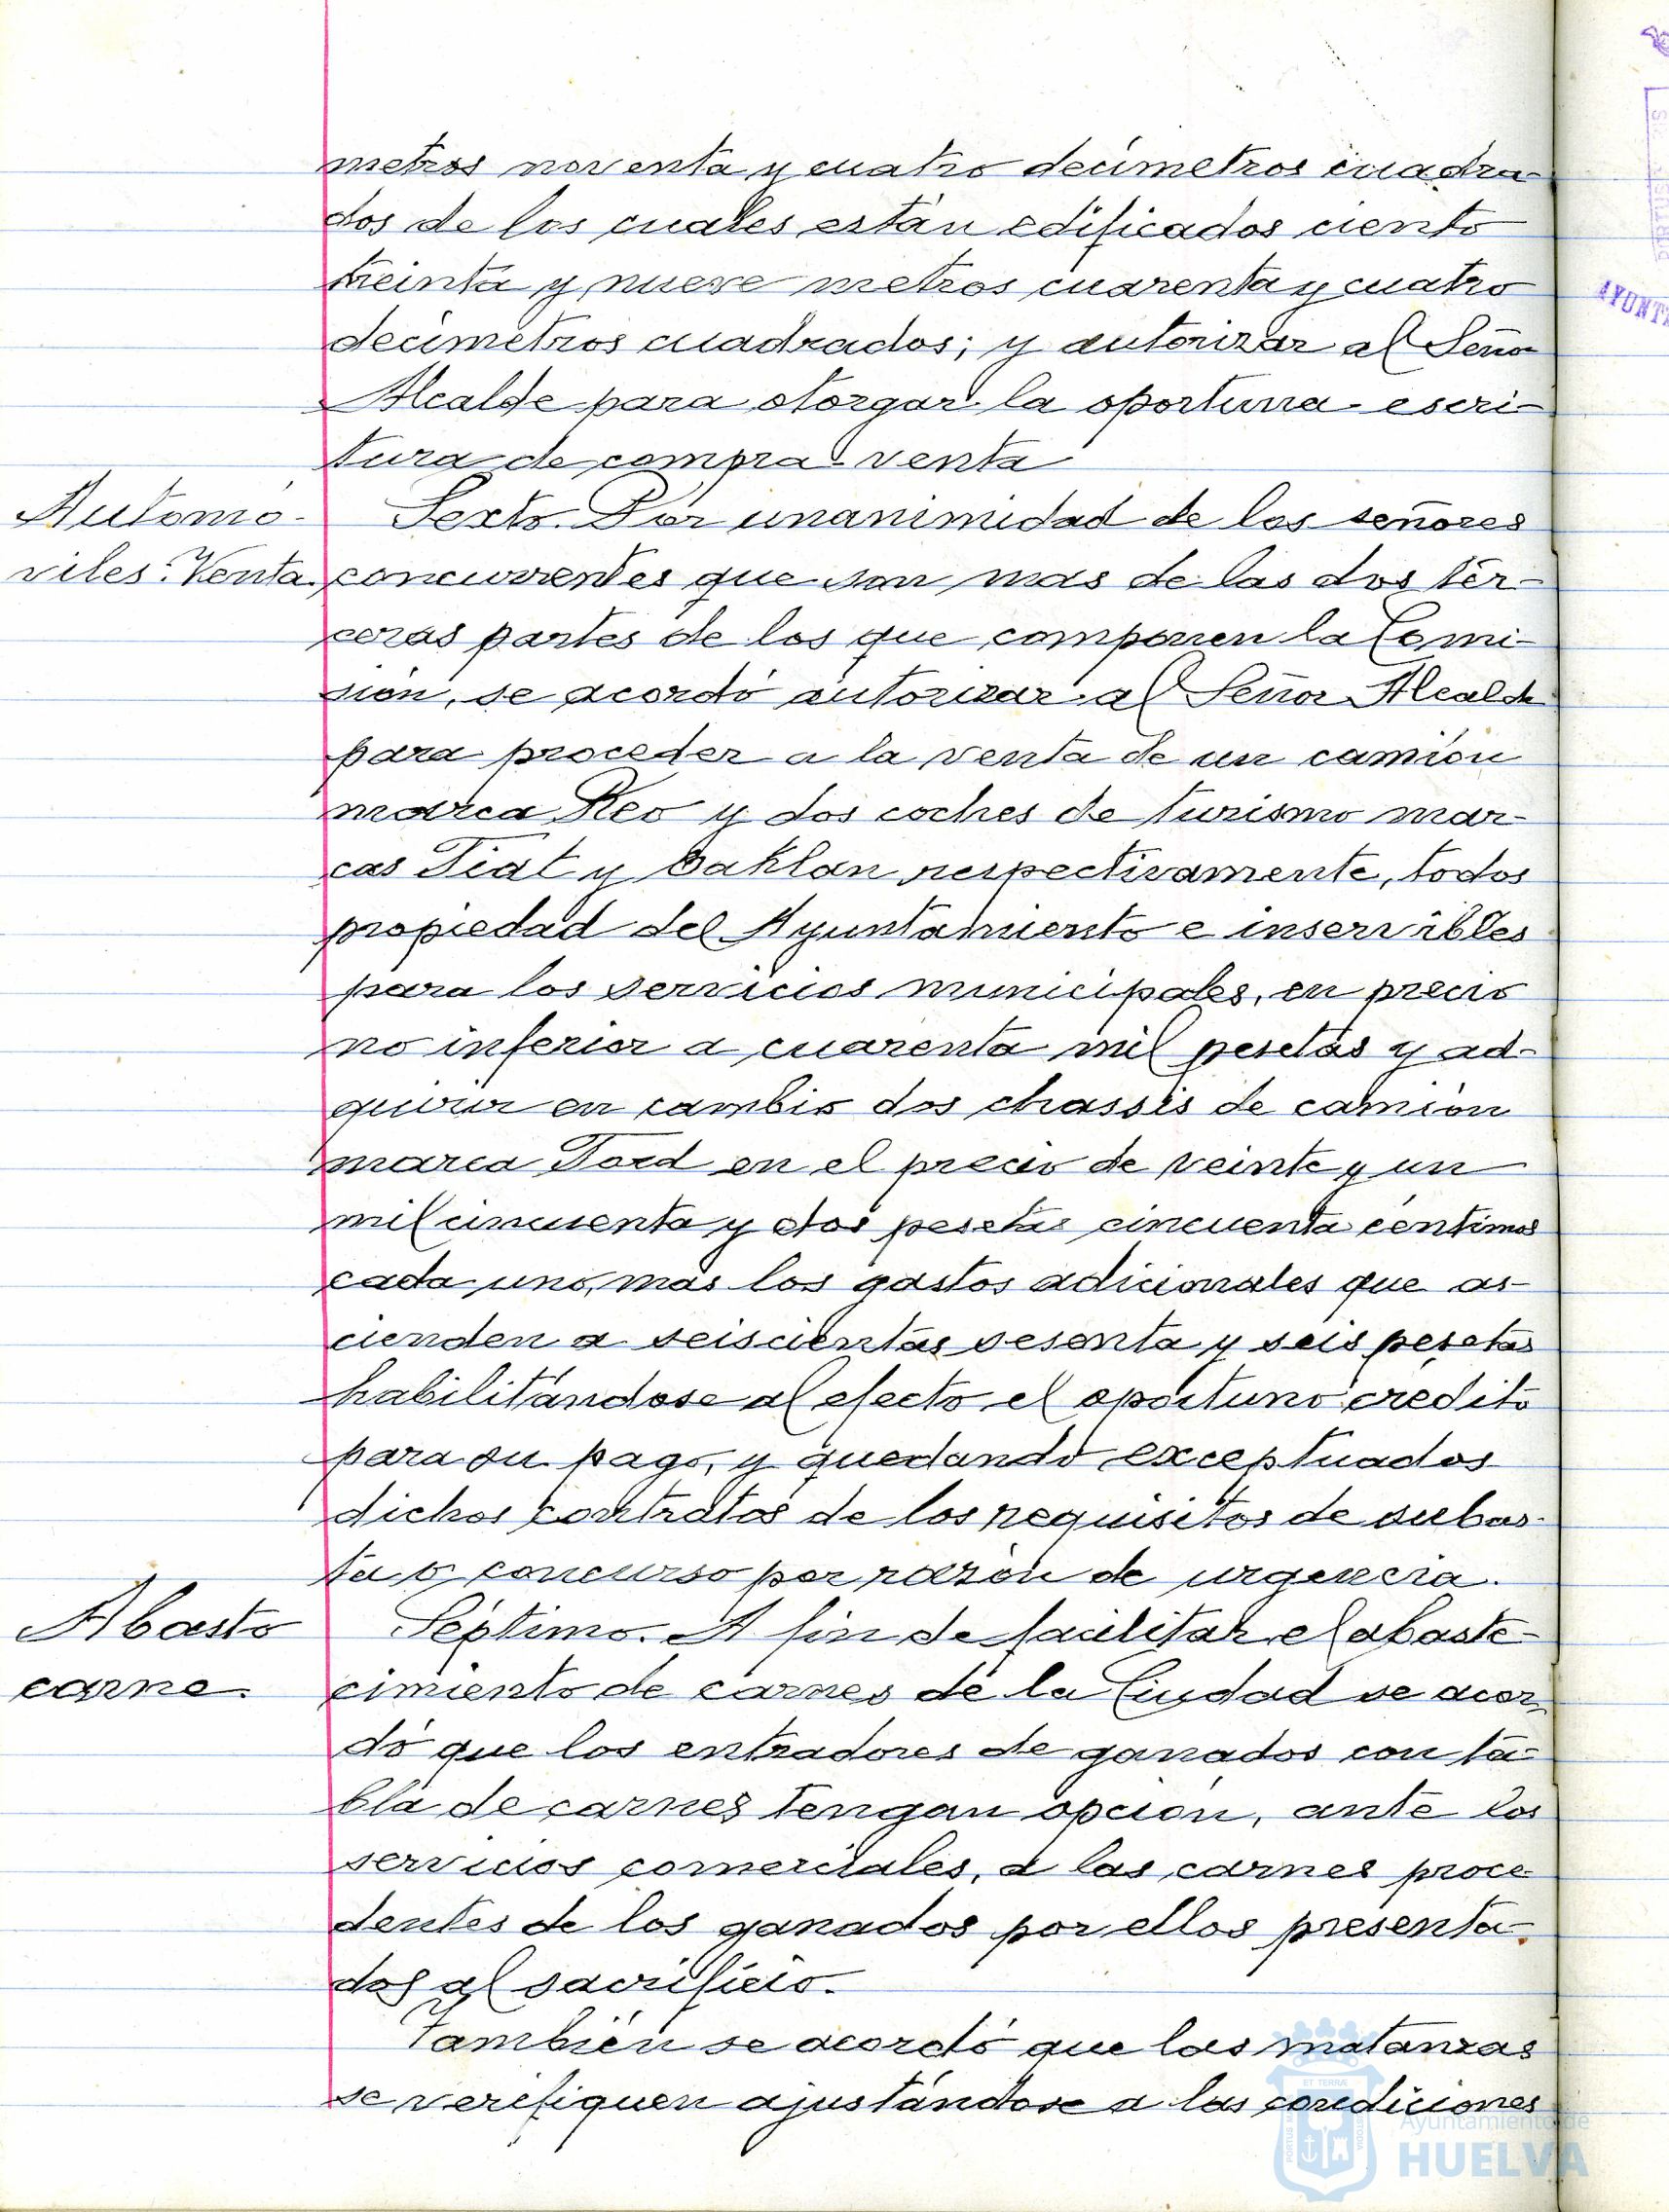 metros noventa y cuatro decimetros cuadra-
dos de los cuales están edificados ciento
treinta y nueve metros cuarenta y cuatro
decimetros cuadrados; y autorizar al Señor
Alcalde para otorgar la oportuna escri-
tura de compra-venta
Automó-
viles. Venta.
Sexto. Por unanimidad de los señores
concurrentes que son mas de las dos ter-
ceras partes de los que componen la Comi-
sión, se acordó autorizar al Señor Alcalde
para proceder a la venta de un camión
marca Reo y dos coches de turismo mar-
cas Fiat y Oaklan respectivamente, todos
propiedad del Ayuntamiento e inservibles
para los servicios municipales, en precio
no inferior a cuarenta mil pesetas y ad-
quirir en cambio dos chassis de camión
marca Ford en el precio de veinte y un
mil cincuenta y dos pesetas cincuenta centimos
cada uno, mas los gastos adicionales que as-
cienden a seiscientas sesenta y seis pesetas
habilitándose al efecto el oportuno credito
para su pago, y quedando exceptuados
dichos contratos de los requisitos de subas-
ta o concurso por razón de urgencia.
Abasto
carne.
Séptimo. A fin de facilitar el abaste-
cimiento de carnes de la Ciudad se acor-
dó que los entradores de ganados con ta-
bla de carnes tengan opción, ante los
servicios comerciales, a las carnes proce-
dentes de los ganados por ellos presenta-
dos al sacrificio.
También se acordó que las matanzas
se verifiquen ajustándose a las condiciones
AYUNTA
Ayuntamiento de
HUELVA